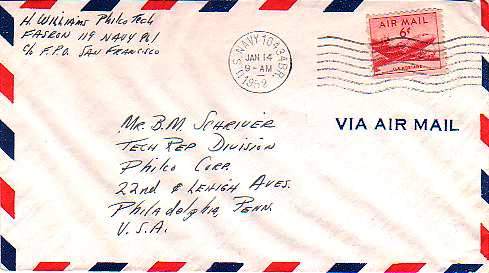 H Williams Philco Tech
FASRON 119 NAVY
C/o F.P.O. SAN FRANCISCO
U.S. NAVY 10434 BR.
JAN 14
9-AM
1952
AIR MAIL
6¢
VIA AIR MAIL
Mr. B.M. SCHRIVER
TECH REP DIVISION
Philco Corp.
22nd & LEHIGH AVES.
Philadelphia, PENN.
U.S.A.